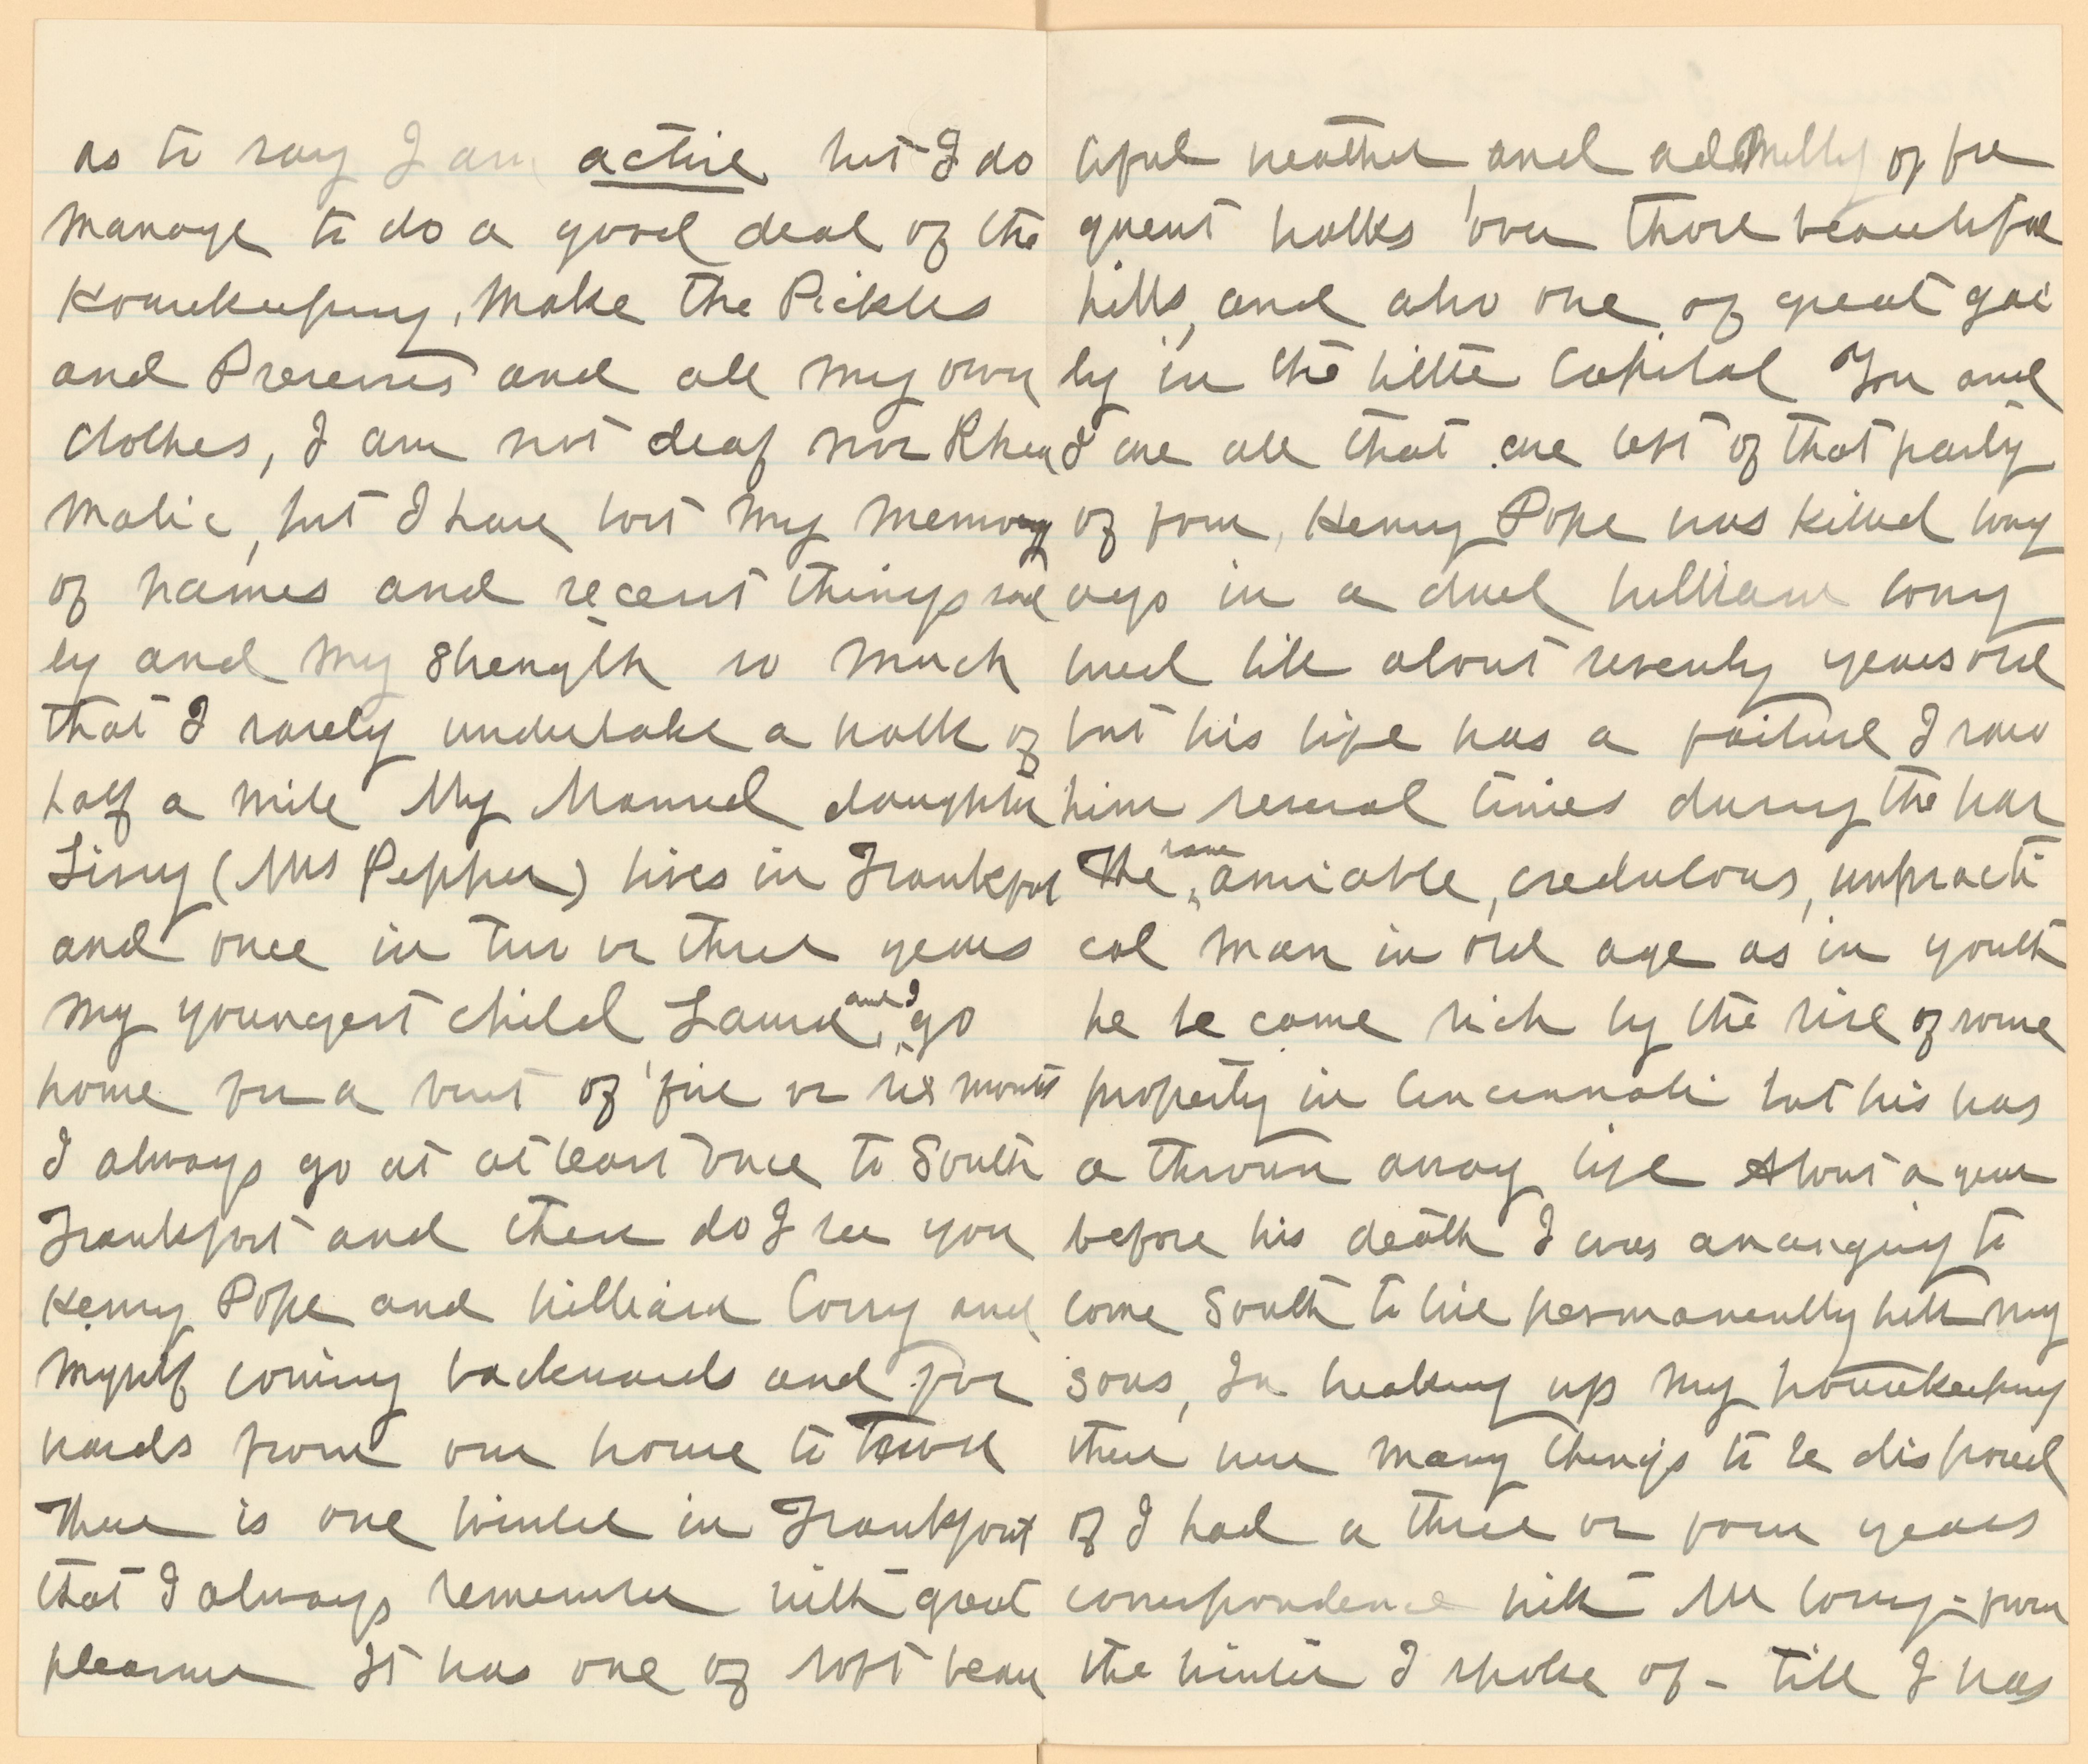 as to say I am active but I do
manage to do a good deal of the
Housekeeping, Make the Pickles
and Preserves and all my own
clothes, I am not deaf nor Rheu
matic, but I have lost my memory
of names and recent things sad
ly and my strength so much
that I rarely undertake a walk of
half a mile My Married daughter
Lizzy (Mrs Pepper) lives in Frankfort
and once in two or three years
my youngest child Laura and I go
home for a visit of five or six months
I always go at at least once to South
Frankfort and then do I see you
Henry Pope and William Corry and
myself coming backwards and for
wards from our house to town
There is one winter in Frankfort
that I always remember with great
pleasure It was one of soft beau
tiful weather, and additionally of fre
quent walks over those beautiful
hills, and also one of great gai
ty in the little Capital You and
I are all that are left of that party
of four, Henry Pope was killed long
ago in a duel William Corry
lived till about seventy years old
but his life was a failure I saw
him several times during the war
The same amiable, credulous, unpracti
cal man in old age as in youth
he be came rich by the rise of some
property in Cincinnati but his was
a thrown away life About a year
before his death I was arranging to
come South to live permanently with my
sons, In breaking up my housekeeping
there were many things to be disposed
of I had a three or four years
correspondence with Mr Corry - from
the winter I spoke of - till I was